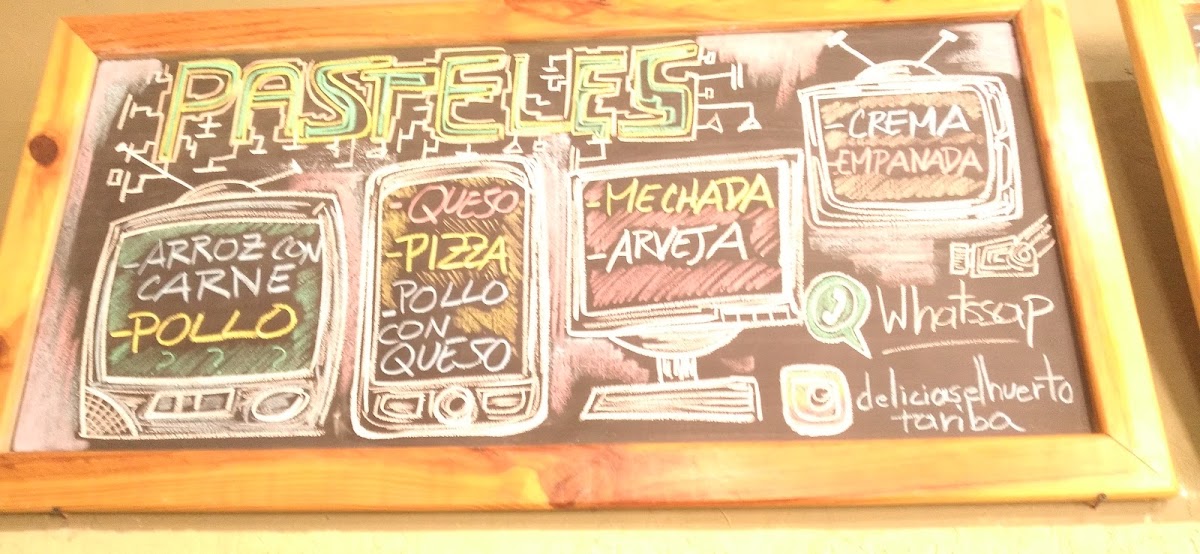 PASTELES
-ARROZ CON
CARNE
-POLLO
-QUESO
-PIZZA
-POLLO
CON
QUESO
-MECHADA
-ARVEJA
-CREMA
-EMPANADA
Whatssap
deliciaselhuerto
tariba